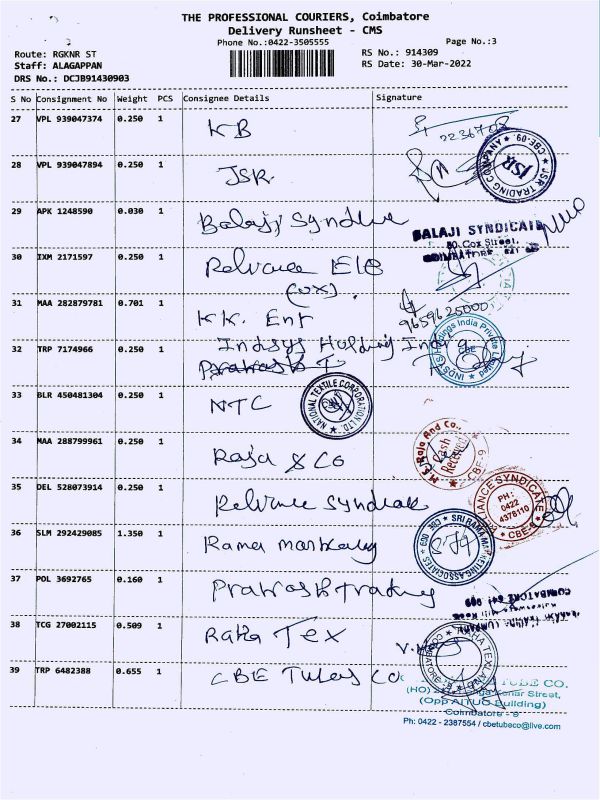 THE PROFESSIONAL COURIERS, Coimbatore
Delivery Runsheet - CMS
Phone No.:0422-3505555 Page No.:3
Route: RGKNR ST RS No.: 914309
Staff: ALAGAPPAN RS Date: 30-Mar-2022
DRS No.: DCJB91430903
S No Consignment No Weight PCS Consignee Details Signature
27 VPL 939047374 0.250 1 KB
28 VPL 939047894 0.250 1 JSR
JSR TRADING COMPANY ★ CBE-09. ★
JSR
29 APK 1248590 0.030 1 Balaji Syndicate
BALAJI SYNDICATE
80, Cox Street,
COIMBATORE
30 IXM 2171597 0.250 1 Reliance Ele
(OX).
31 MAA 282879781 0.701 1 KK. Ent 9659625000
32 TRP 7174966 0.250 1 Indsys Holding India
INDSYS Holdings India Private Limited
CBE
33 BLR 450481304 0.250 1 NTC
NATIONAL TEXTILE CORPORATION LTD.
34 MAA 288799961 0.250 1 Raja & Co
M/s. Raja And Co.,
Cash
Received
CBE-9
35 DEL 528073914 0.250 1 Reliance Syndicate
RELIANCE SYNDICATE
PH:
0422
4378110
CBE-9
36 SLM 292429085 1.350 1 Rama Marketing
SRI RAMA MARKETING ASSOCIATES ★ CBE 009
37 POL 3692765 0.160 1 Prakash Trading
COIMBATORE 641 009
38 TCG 27002115 0.509 1 Raka Tex
COIMBATORE
39 TRP 6482388 0.655 1 CBE Tubes Co
TUBE CO.
(HO) Konar Street,
(Opp AITUC Building)
Coimbatore - 9
Ph: 0422 - 2387554 / cbetubeco@live.com